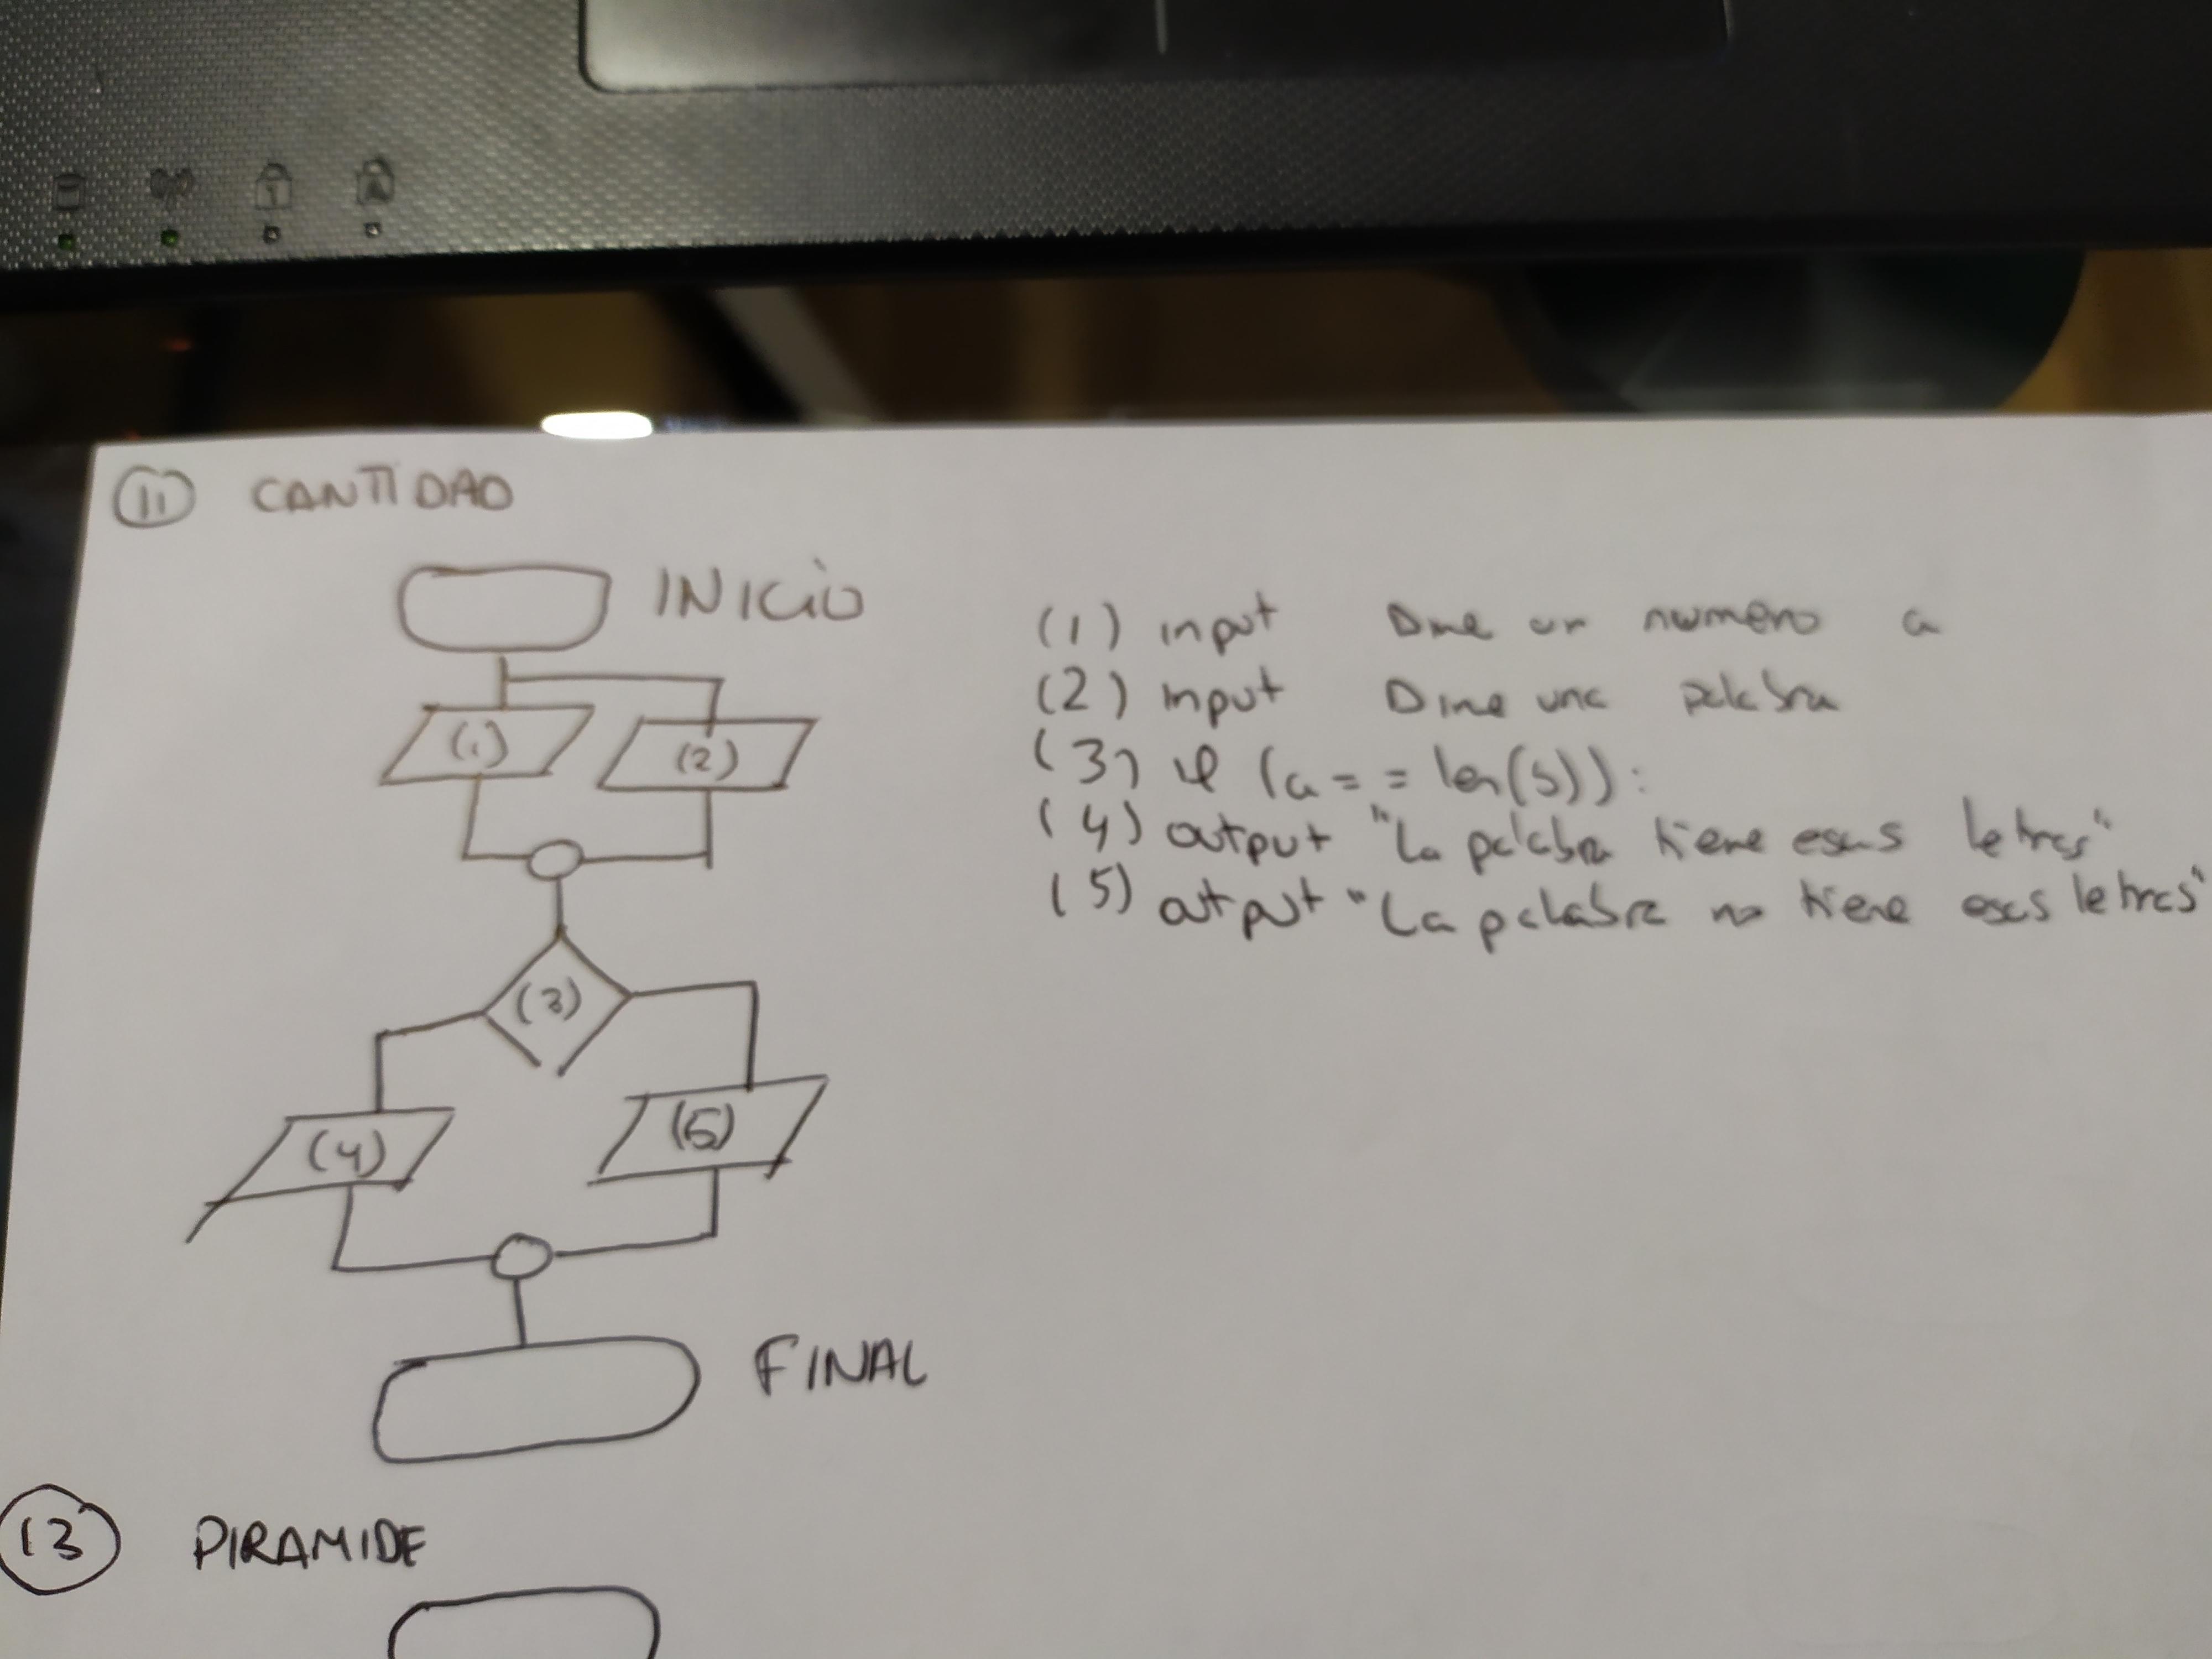 11 CANTIDAD
INICIO
(1) input Dime un numero a
(2) input Dime una palabra
(3) if (a == len(s)):
(4) output "La palabra tiene esas letras"
(5) output "La palabra no tiene esas letras"
(1) (2)
(3)
(4) (5)
FINAL
13 PIRAMIDE